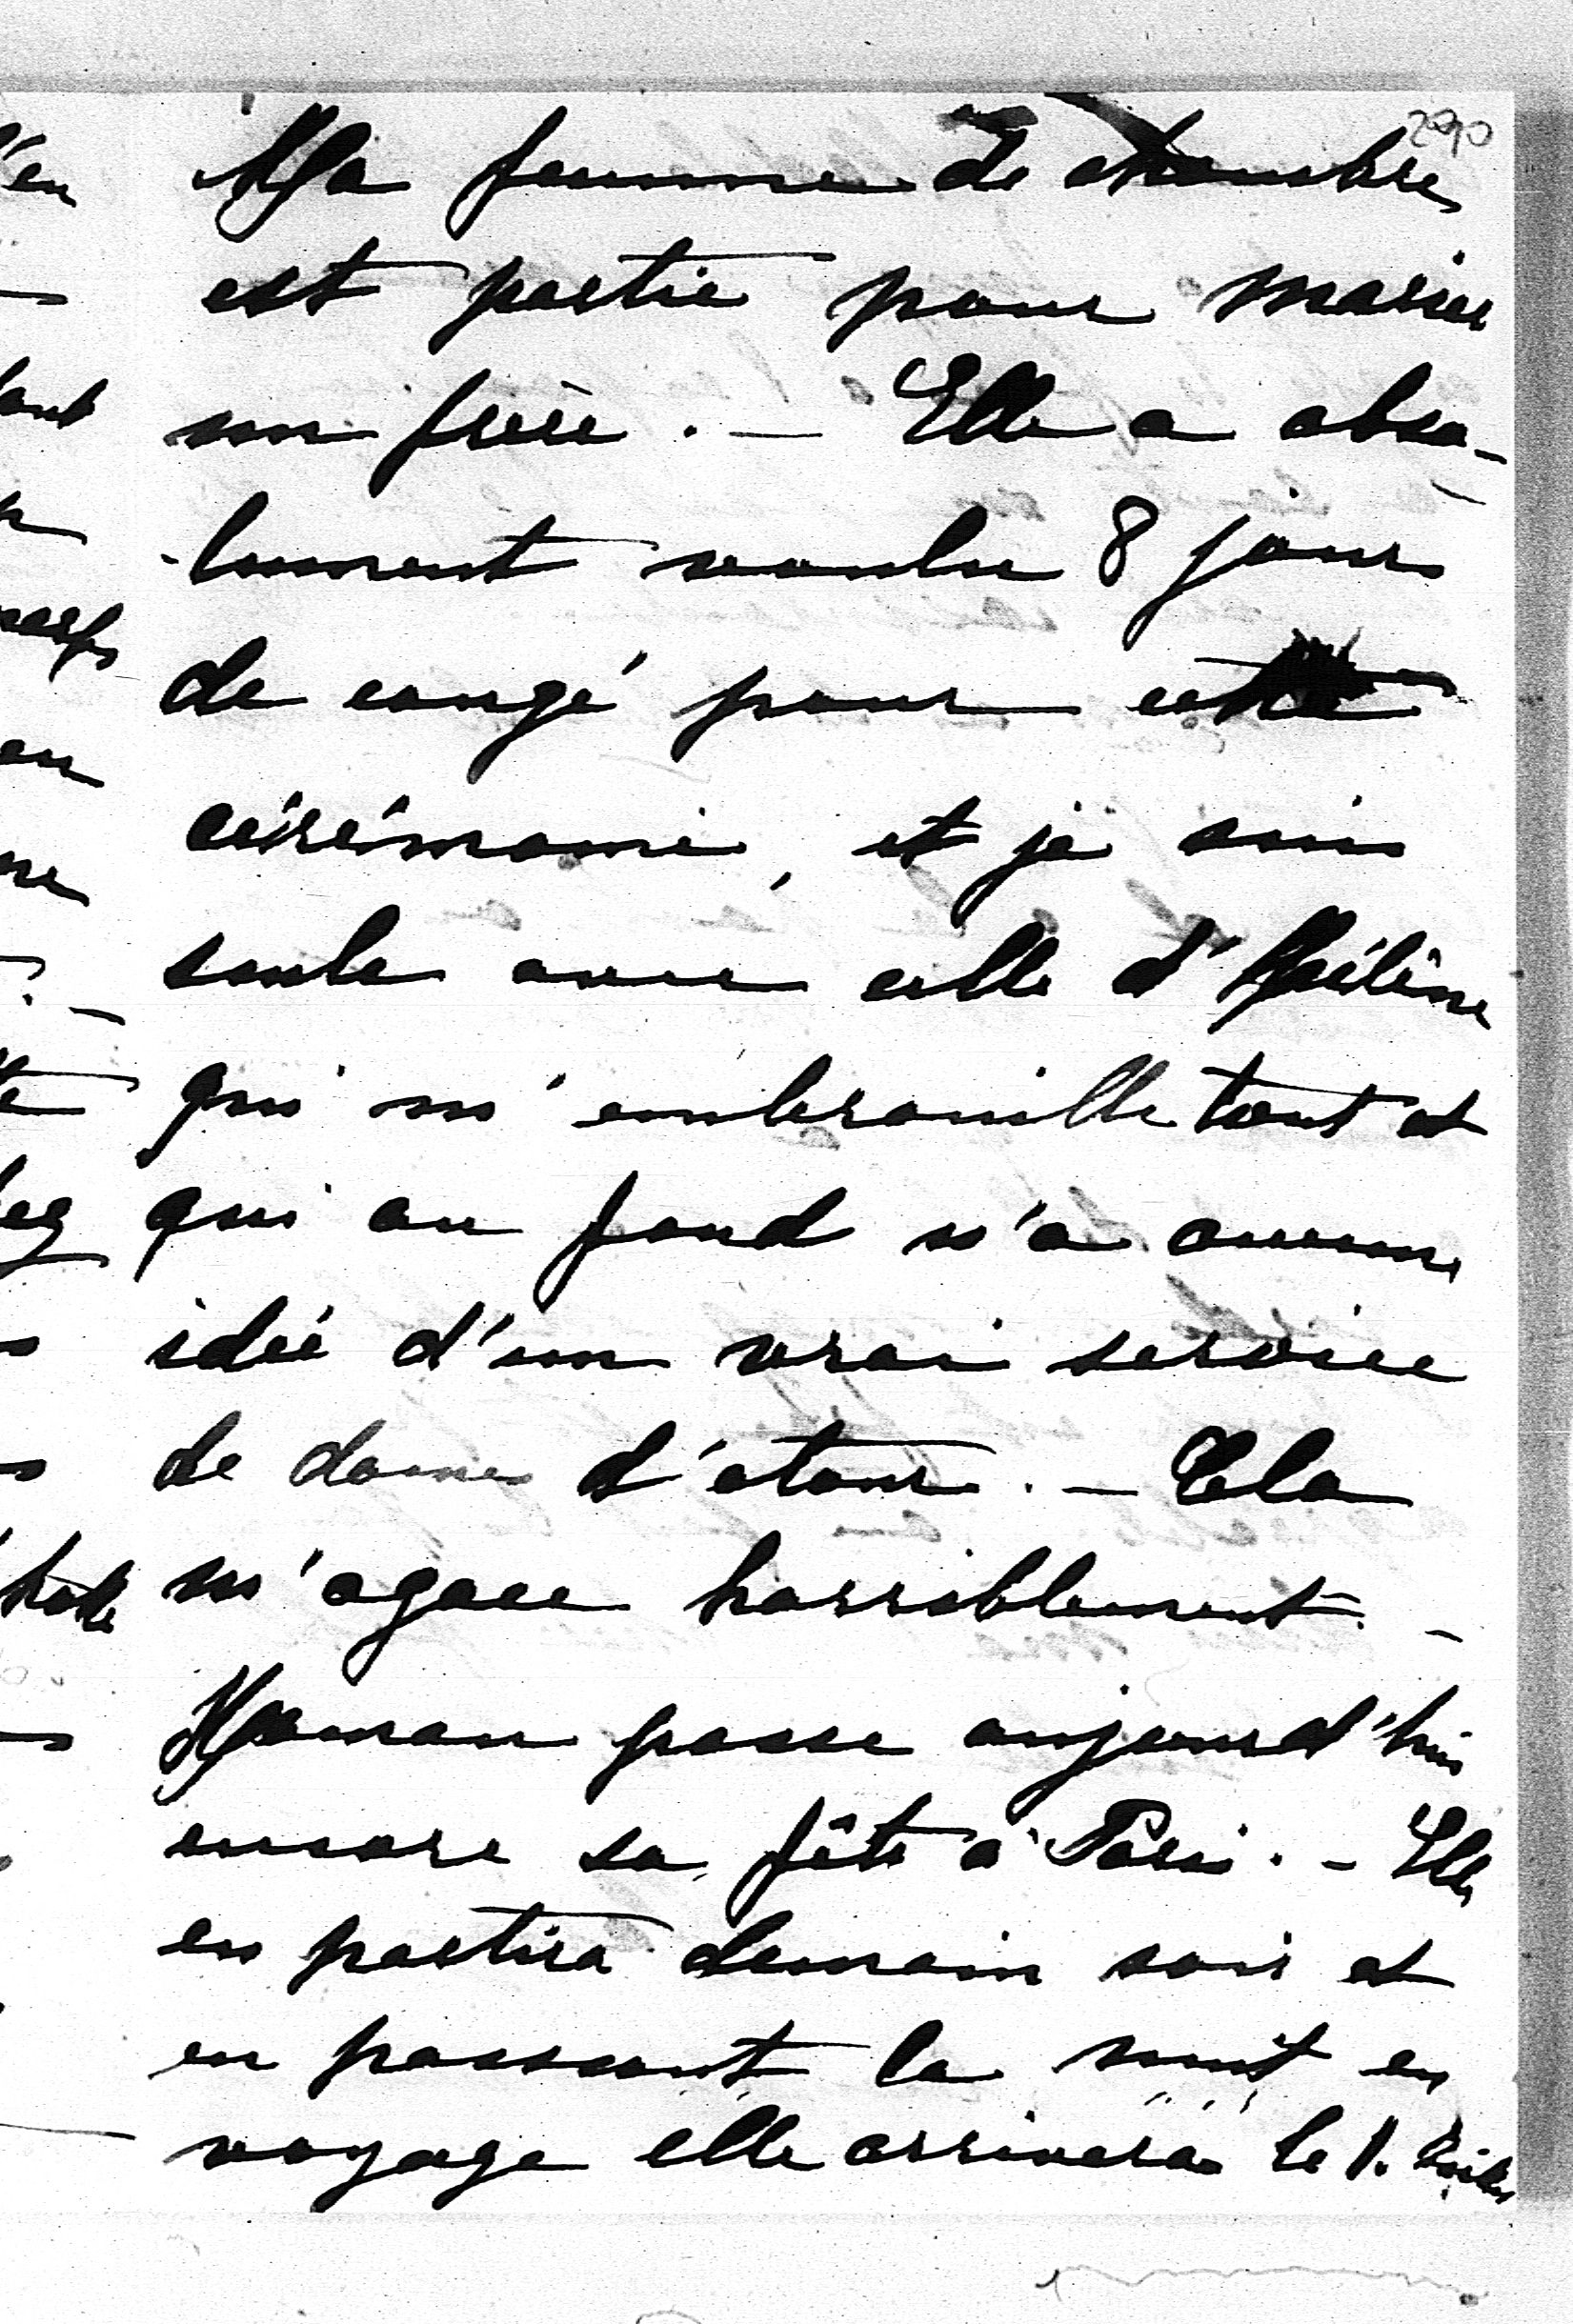 290
Ma femme de chambre
est partie pour marier
son frère. — Elle a abso-
-lument voulu 8 jours
de congé pour cette
cérémonie, et je suis
seule avec celle d'Hélène
qui m'embrouille tout et
qui au fond n'a aucune
idée d'un vrai service
de dame d'atour. — Cela
m'agace horriblement. —
Maman passe aujourd'hui
encore sa fête à Paris. — Elle
en partira demain soir et
en passant la nuit en
voyage elle arrivera le 1.